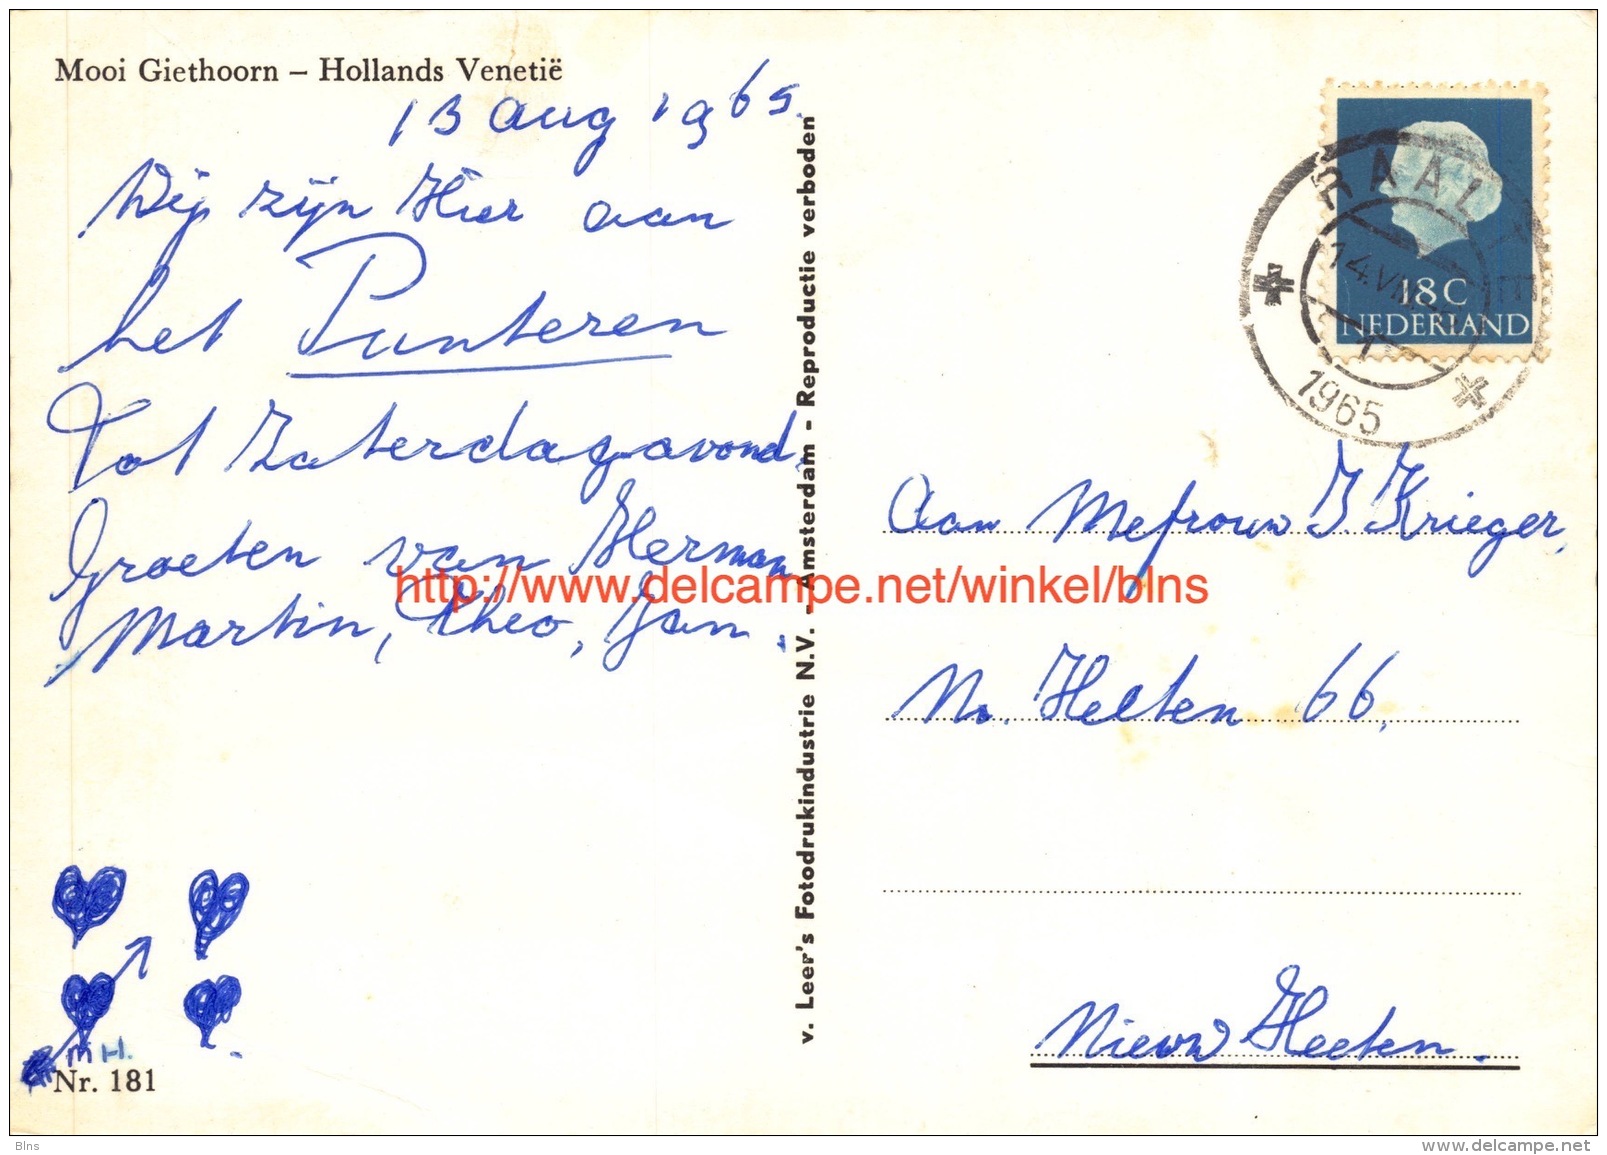 Mooi Giethoorn – Hollands Venetië
13 aug 1965.
Wij zijn Hier aan
het Punteren
Tot Zaterdagavond,
Groeten van Herman
Martin, Theo, Jan.
M H.
Nr. 181
v. Leer's Fotodrukindustrie N.V. - Amsterdam - Reproductie verboden
RAALT
14.VIII
1965
18 C
NEDERLAND
Aan Mefrouw J Krieger,
N. Heeten 66,
Nieuw Heeten.
http://www.delcampe.net/winkel/blns
Blns
www.delcampe.net